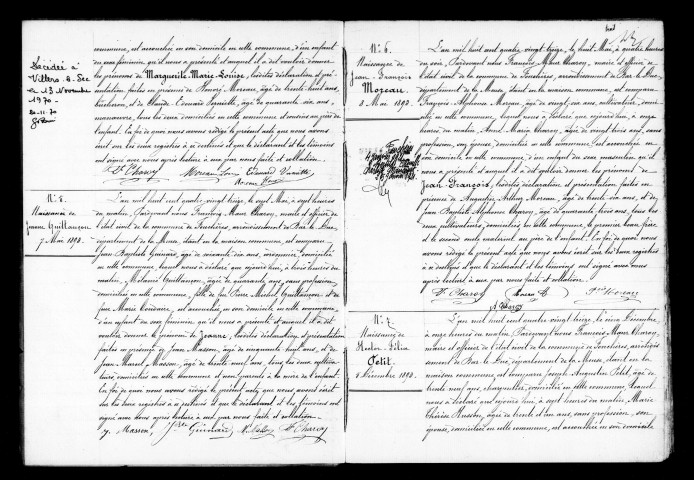 commune, est accouchée en son domicile en cette commune, d'un enfant
du sexe féminin, qu'il nous a présenté et auquel il a dit vouloir donner
les prénoms de Marguerite-Marie-Louise, lesdites déclaration et pré-
sentation faites en présence de Honoré Moreau, âgé de trente huit ans,
bûcheron, et de Claude Edouard âgé de quarante six ans,
manœuvre, tous les deux domiciliés en cette commune et
l'enfant. En foi de quoi nous avons rédigé le présent acte que nous avons
inscrit sur les deux registres à ce destinés et que le déclarant et les témoins
ont signé avec nous après lecture à eux par nous faite et collation.
Décédée à
Villers-s-
le 13 Novembre
1970
20-11-70
N° 5.
Naissance de
Jeanne Guillançon
7 Mai 1893.
L'an mil huit cent quatre vingt treize, le sept Mai, à sept heures
du matin, Pardevant nous François Alfred Charoy, maire et officier de
l'état civil de la commune de Foucheres, arrondissement de Bar le Duc,
département de la Meuse, étant en la maison commune, est comparu
Jean Baptiste âgé de soixante dix ans, domicilié
en cette commune, lequel nous a déclaré que cejourd'hui, à trois heures du
matin, Mélanie Guillançon, âgée de quarante ans, sans profession,
domiciliée en cette commune, fille de feu Pierre Michel Guillançon et de
feue Marie est accouchée en son domicile en cette commune,
d'un enfant du sexe féminin, qu'il nous a présenté et auquel il a dit
vouloir donner le prénom de Jeanne, lesdites déclaration et présentation
faites en présence de Jean Masson, âgé de cinquante huit ans, et de
Jean âgé de trente huit ans, tous les deux
domiciliés en cette commune et non parents de la mère de l'enfant.
En foi de quoi nous avons rédigé le présent acte, que nous avons inscrit
sur les deux registres à ce destinés et que le déclarant et les témoins ont
signé avec nous après lecture à eux par nous faite et collation.
J. Masson, Charoy
N° 6.
Naissance de
Jean-François
Moreau
8 Mai 1893.
L'an mil huit cent quatre vingt treize, le huit Mai, à quatre heures
du soir, Pardevant nous François Alfred Charoy, maire et officier de
l'état civil de la commune de Foucheres, arrondissement de Bar le Duc,
département de la Meuse, étant en la maison commune, est comparu
François Alphonse Moreau, âgé de vingt six ans, cultivateur, domici-
lié en cette commune, lequel nous a déclaré que cejourd'hui, à onze
heures du matin, Anne Marie Charoy, âgée de vingt trois ans, sans
profession, son épouse, domiciliée en cette commune, est accouchée en
son domicile en cette commune, d'un enfant du sexe masculin, qu'il
nous a présenté et auquel il a dit vouloir donner les prénoms de
Jean François, lesdites déclaration et présentation faites en
présence de Augustin Moreau, âgé de trente ans, et de
Jean Baptiste Alphonse Charoy, âgé de quarante trois ans, tous les
deux cultivateurs, domiciliés en cette commune, le premier
et le second oncle maternel de l'enfant. En foi de quoi nous
avons rédigé le présent acte que nous avons inscrit sur les deux registres
à ce destinés et que le déclarant et les témoins ont signé avec nous
après lecture à eux par nous faite et collation.
Charoy Moreau
A. Charoy
N° 7.
Naissance de
Félix
Petit.
8 Décembre 1893.
L'an mil huit cent quatre vingt treize, le Décembre
à onze heures du matin, Pardevant nous François Alfred Charoy,
maire et officier de l'état civil de la commune de Foucheres, arrondis-
sement de Bar le Duc, département de la Meuse, étant en la
maison commune, est comparu Joseph Augustin Petit, âgé de
trente neuf ans, charpentier, domicilié en cette commune, lequel
nous a déclaré que cejourd'hui, à sept heures du matin, Marie
Thérèse Husson, âgée de trente et un ans, sans profession, son
épouse, domiciliée en cette commune, est accouchée en son domicile